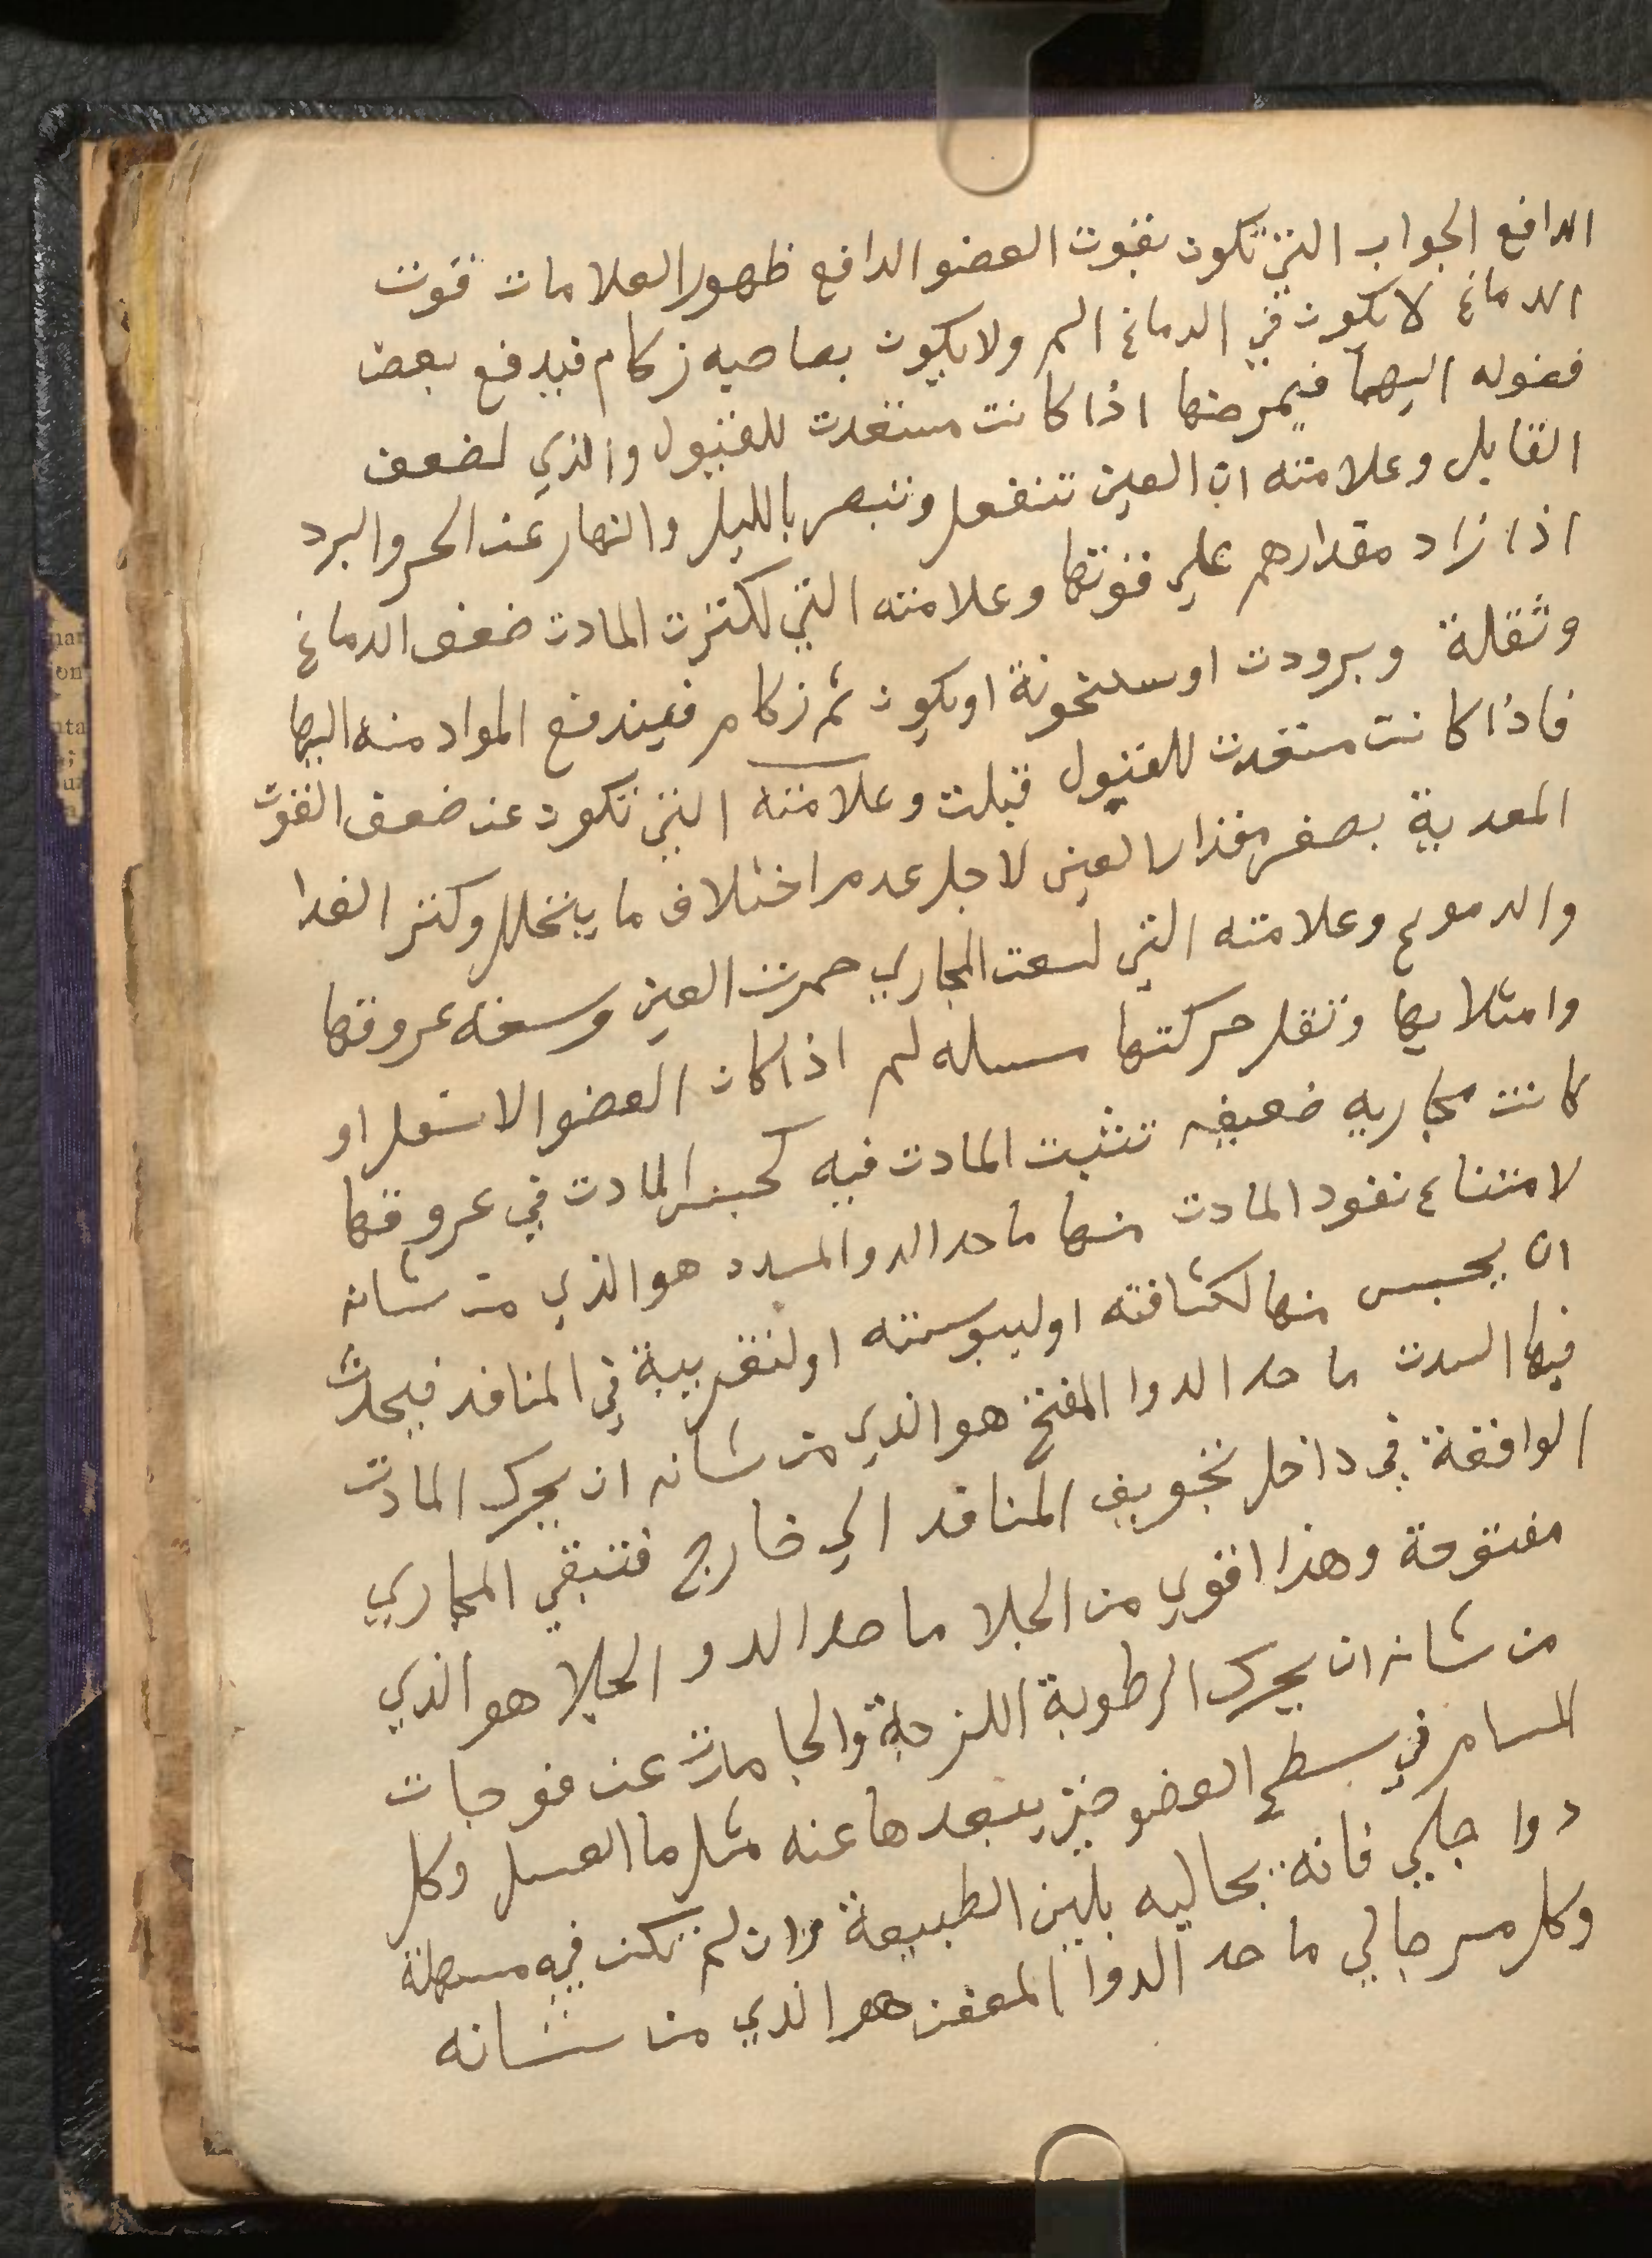 الدافع الجواب التي تكون بقوت العضو الدافع ظهور العلامات قوت
الدماغ لا يكون في الدماغ الم ولا يكون بصاحبه زكام فيدفع بعض
فضوله اليها فيمرضها اذا كانت مستعدت للقبول والذي لضعف
القابل وعلامته ان العين تنفعل وتبصر بالليل والنهار عند الحر والبرد
اذا زاد مقدارهم علي قوتها وعلامته التي لكترت المادت ضعف الدماغ
وثقلة وبرودت او سخونة او يكون ثم زكام فيندفع المواد منه اليها
فاذا كانت مستعدت للقبول قبلت وعلامته التي تكون عند ضعف القوت
المعدية بصغر مقدار العين لاجل عدم اختلاف ما يتخلل وكتر الغدا
والدموع وعلامته التي لسعت المجاري حمرت العين وسعه عروقها
وامتلايها وتقل حركتها مسله لم اذا كان العضو الاسفل او
كانت مجاريه ضعيفه تتثبت المادت فيه كحبس المادت في عروقها
لامتناع نفود المادت منها ما حد الدوا المسدد هو الذي من شانه
ان يحبس منها لكثافته او ليبوسته او لتغريية في المنافد فيحدث
فيها السدت ما حد الدوا المفتح هو الذي من شانه ان يحرك المادت
الواقعة في داخل تجويف المنافد الي خارج فتبقي المجاري
مفتوحة وهذا اقوي من الجلا ما حد الدوا الجلا هو الذي
من شانه ان يحرك الرطوبة اللزجة والجامدت عند فوجات
المسام في سطح العضو حتي يبعدها عنه مثل ما العسل وكل
دوا جلي فانه بجاليه يلين الطبيعة وان لم تكن فيه مسهلة
وكل مر جالي ما حد الدوا المعفن هو الذي من شانه